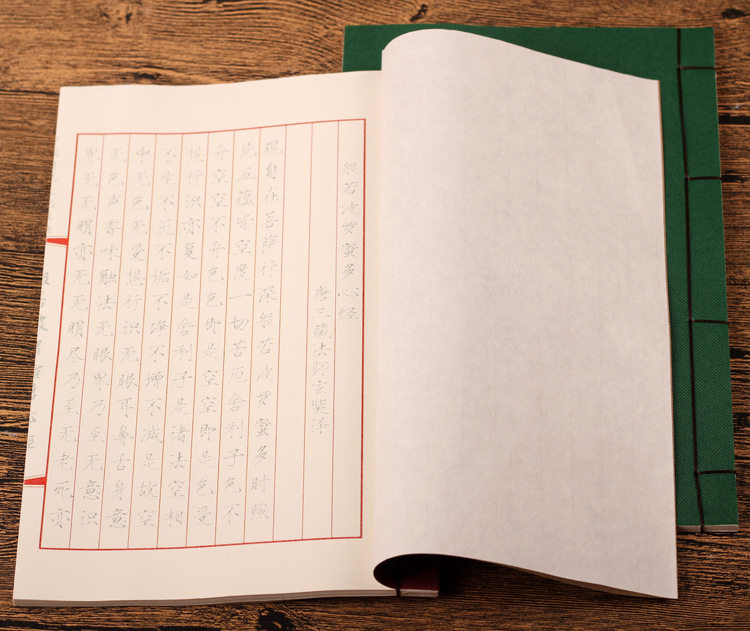 般若波罗蜜多心经
唐三藏法师玄奘译
观自在菩萨行深般若波罗蜜多时照
见五蕴皆空度一切苦厄舍利子色不
异空空不异色色即是空空即是色受
想行识亦复如是舍利子是诸法空相
不生不灭不垢不净不增不减是故空
中无色无受想行识无眼耳鼻舌身意
无色声香味触法无眼界乃至无意识
界无无明亦无无明尽乃至无老死亦